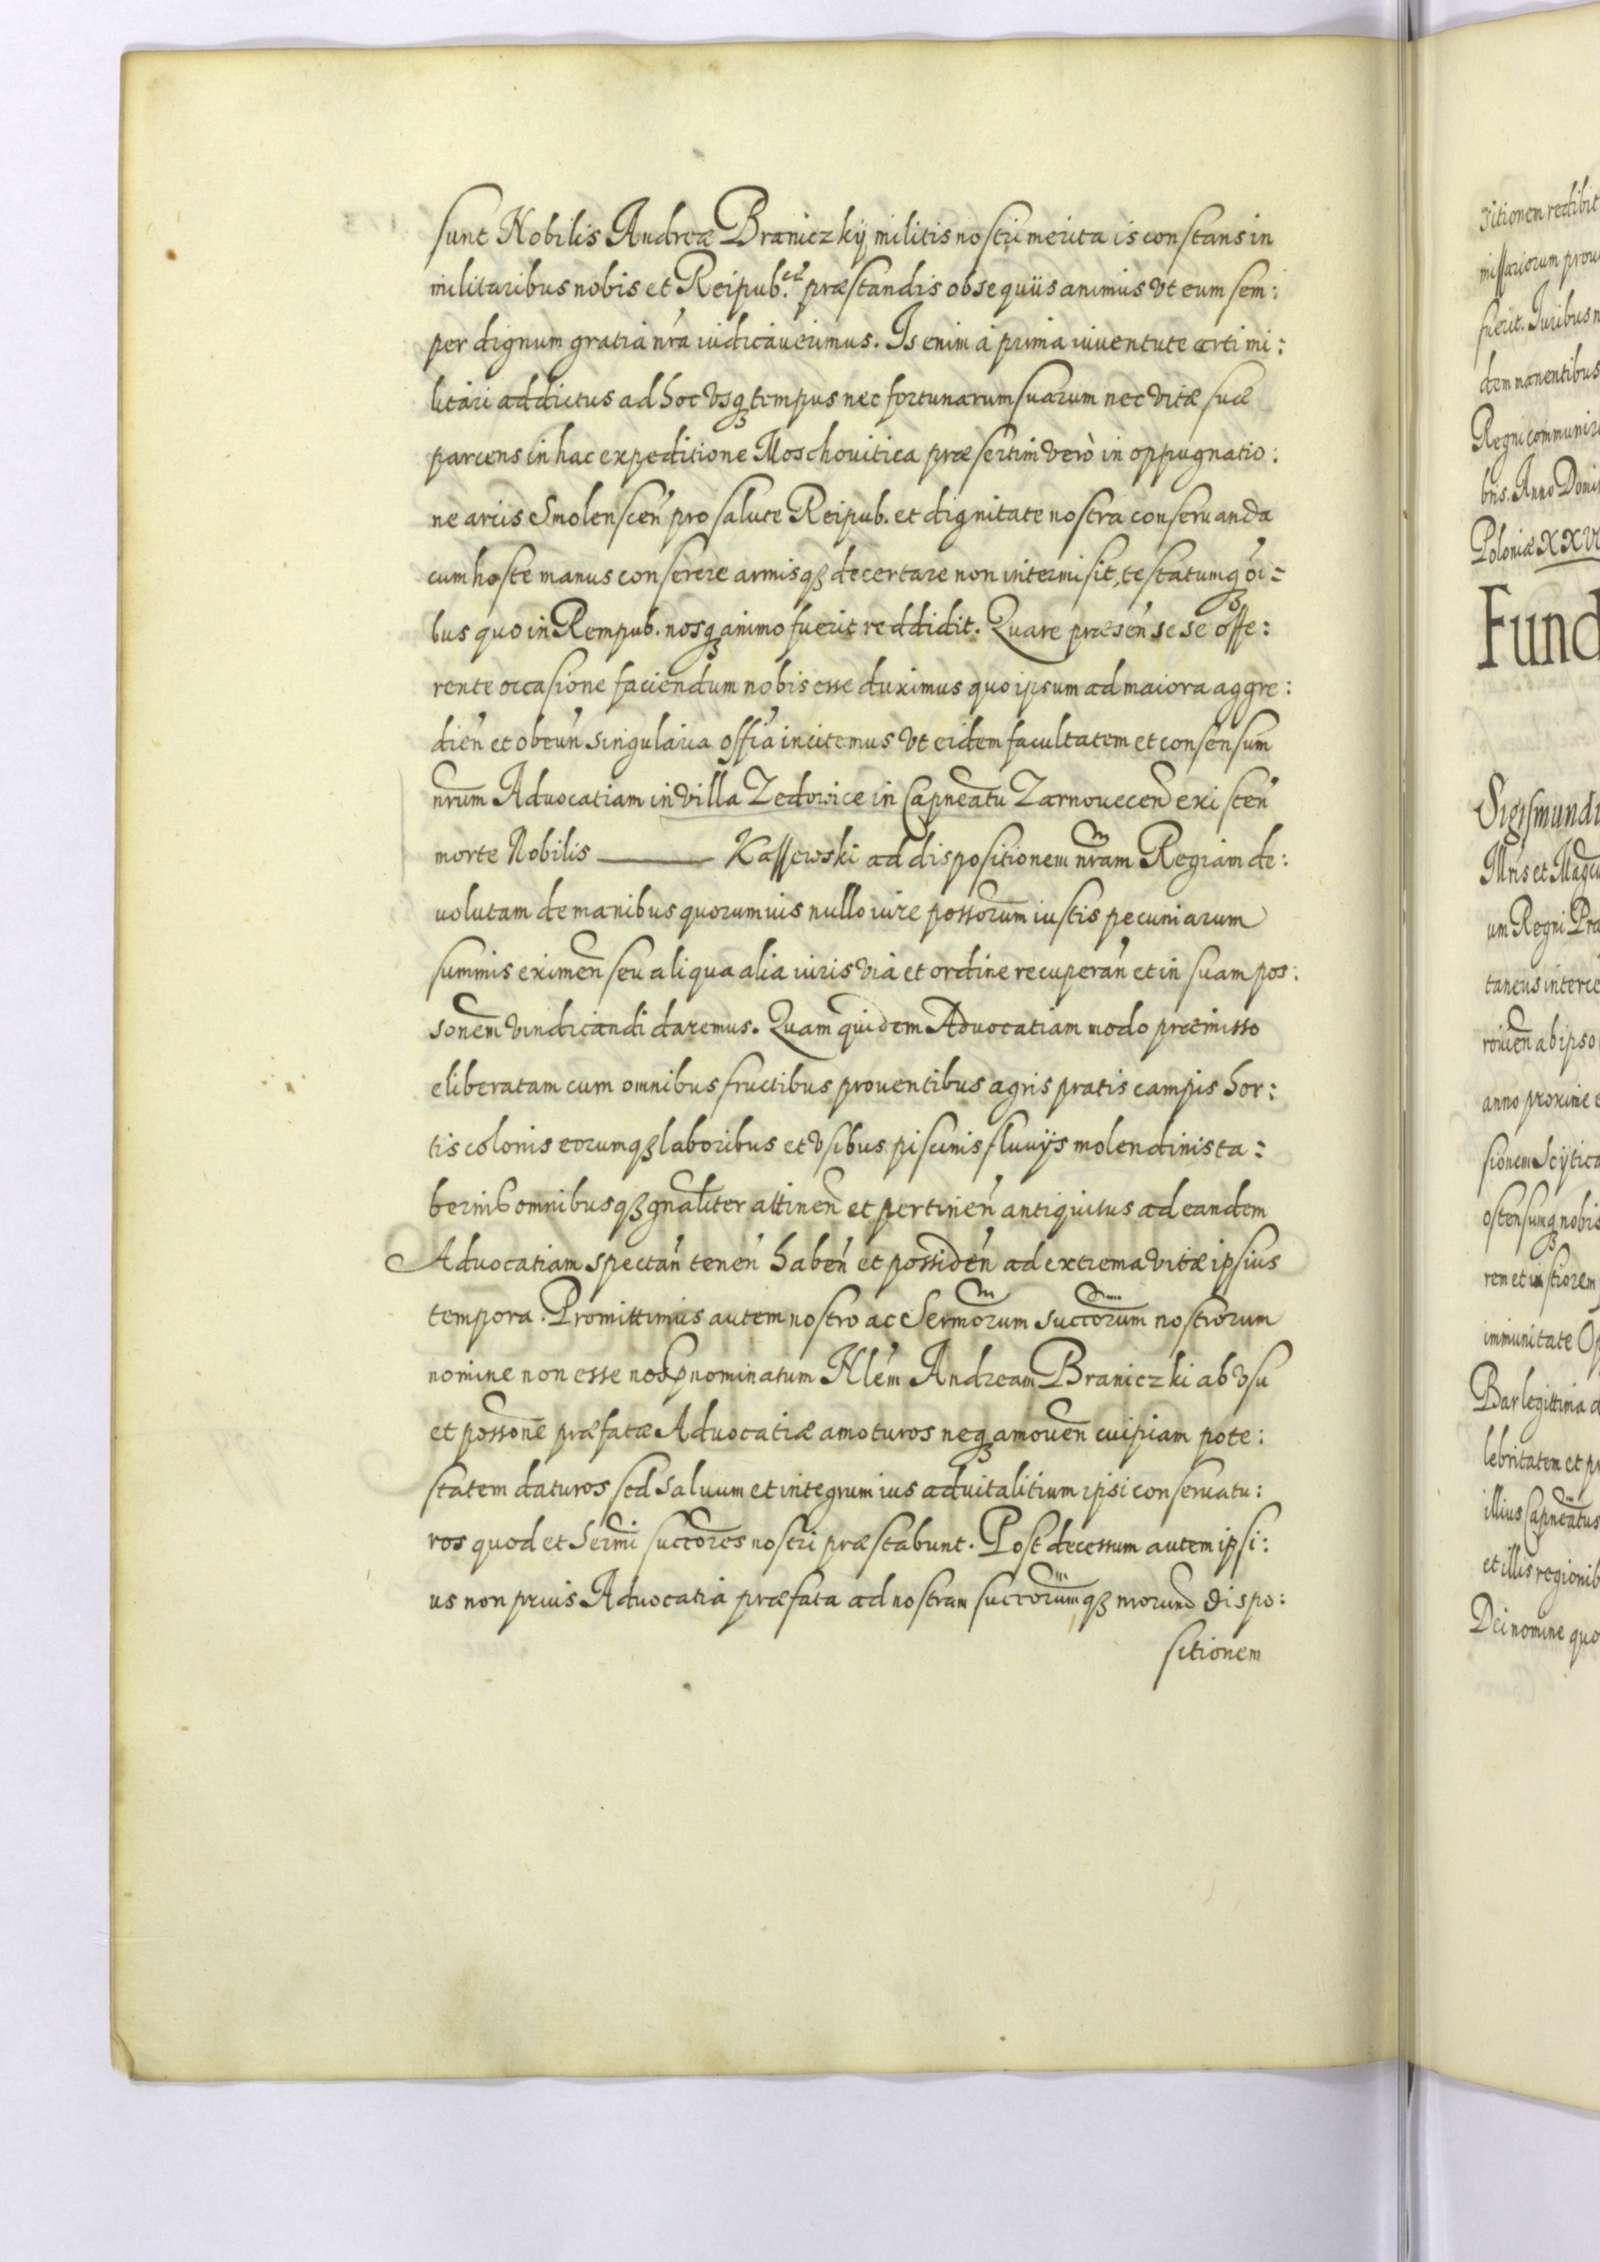 sunt Nobilis Andreæ Braniczkij militis nostri merita is constans in
militaribus nobis et Reipub. præstandis obsequiis animus vt eum sem:
per dignum gratia nrã iudicauerimus. Is enim à prima iuuentute arti mi:
litari addictus ad hoc vsq tempus nec fortunarum suarum nec vitæ suæ
parcens in hac expeditione Moschouitica præsertim verò in oppugnatio:
ne arcis Smolenscen̄ pro salute Reipub. et dignitate nostra conseruanda
cum hoste manus conserere armisq decertare non intermisit, testatumq oi=
bus quo in Rempub. nosq animo fuerit reddidit. Quare præsen̄ se se offe:
rente occasione faciendum nobis esse duximus quo ipsum ad maiora aggre:
dien̄ et obeun̄ singularia offia incitemus vt eidem facultatem et consensum
nrum Aduocatiam in villa Zedowice in Capneatu Zarnouecen̄ existen̄
morte Nobilis ——— Kassewski ad dispositionem nram Regiam de:
uolutam de manibus quorumuis nullo iure possorum iustis pecuniarum
summis eximen̄ seu aliqua alia iuris via et ordine recuperan̄ et in suam pos:
sonem vindicandi daremus. Quam quidem Aduocatiam modo præmisso
eliberatam cum omnibus fructibus prouentibus agris pratis campis hor:
tis colonis eorumq laboribus et vsibus piscinis fluuijs molendinis ta:
bernis omnibusq gnaliter attinen̄ et pertinen̄ antiquitus ad eandem
Aduocatiam spectan̄ tenen̄ haben̄ et possiden̄ ad extrema vitæ ipsius
tempora. Promittimus autem nostro ac Sermorum succorum nostrorum
nomine non esse nos pnominatum Nlem Andream Braniczki ab vsu
et possone præfatæ Aduocatiæ amoturos neq amouen̄ cuipiam pote:
statem daturos sed saluum et integrum ius aduitalitium ipsi conseruatu:
ros quod et Sermi succores nostri præstabunt. Post decessum autem ipsi:
us non prius Aduocatia præfata ad nostram succorumq nrorum dispo:
sitionem
Fund
Sigismund
um Regni
taneus
ab ipso
anno proxime
nobis
immunitate
Bar legittima
illius Capneatus
et illis
Dei nomine quo